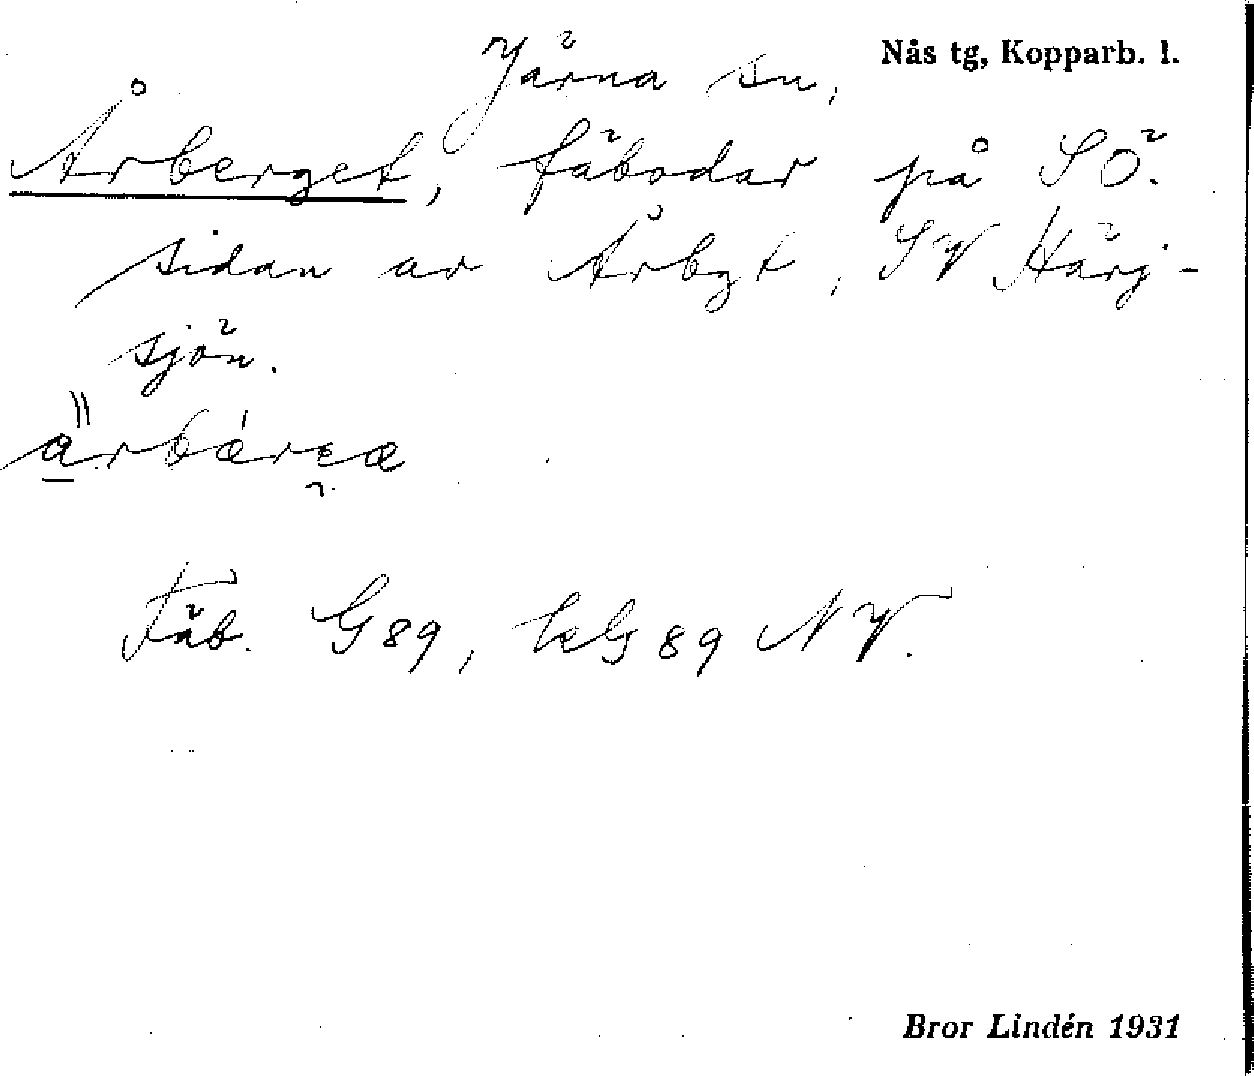 Järna sn, Nås tg, Kopparb. l.
Årberget, fäbodar på SÖ.
sidan av Årbgt, SV Härj-
sjön.
Fäb. G 89, LG 89 NV.
Bror Lindén 1931